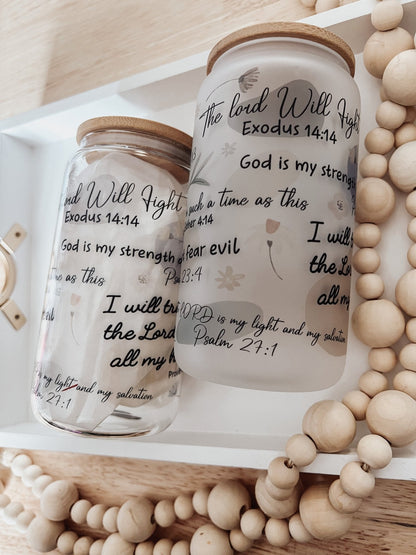 The lord Will Fight
Exodus 14:14
God is my strength
such a time as this
4:14
I will
the Lord
all my
LORD is my light and my salvation
Psalm 27:1
Will Fight
Exodus 14:14
God is my strength
fear evil
23:4
time as this
I will
the Lord
all my
is my light and my salvation
Psalm 27:1